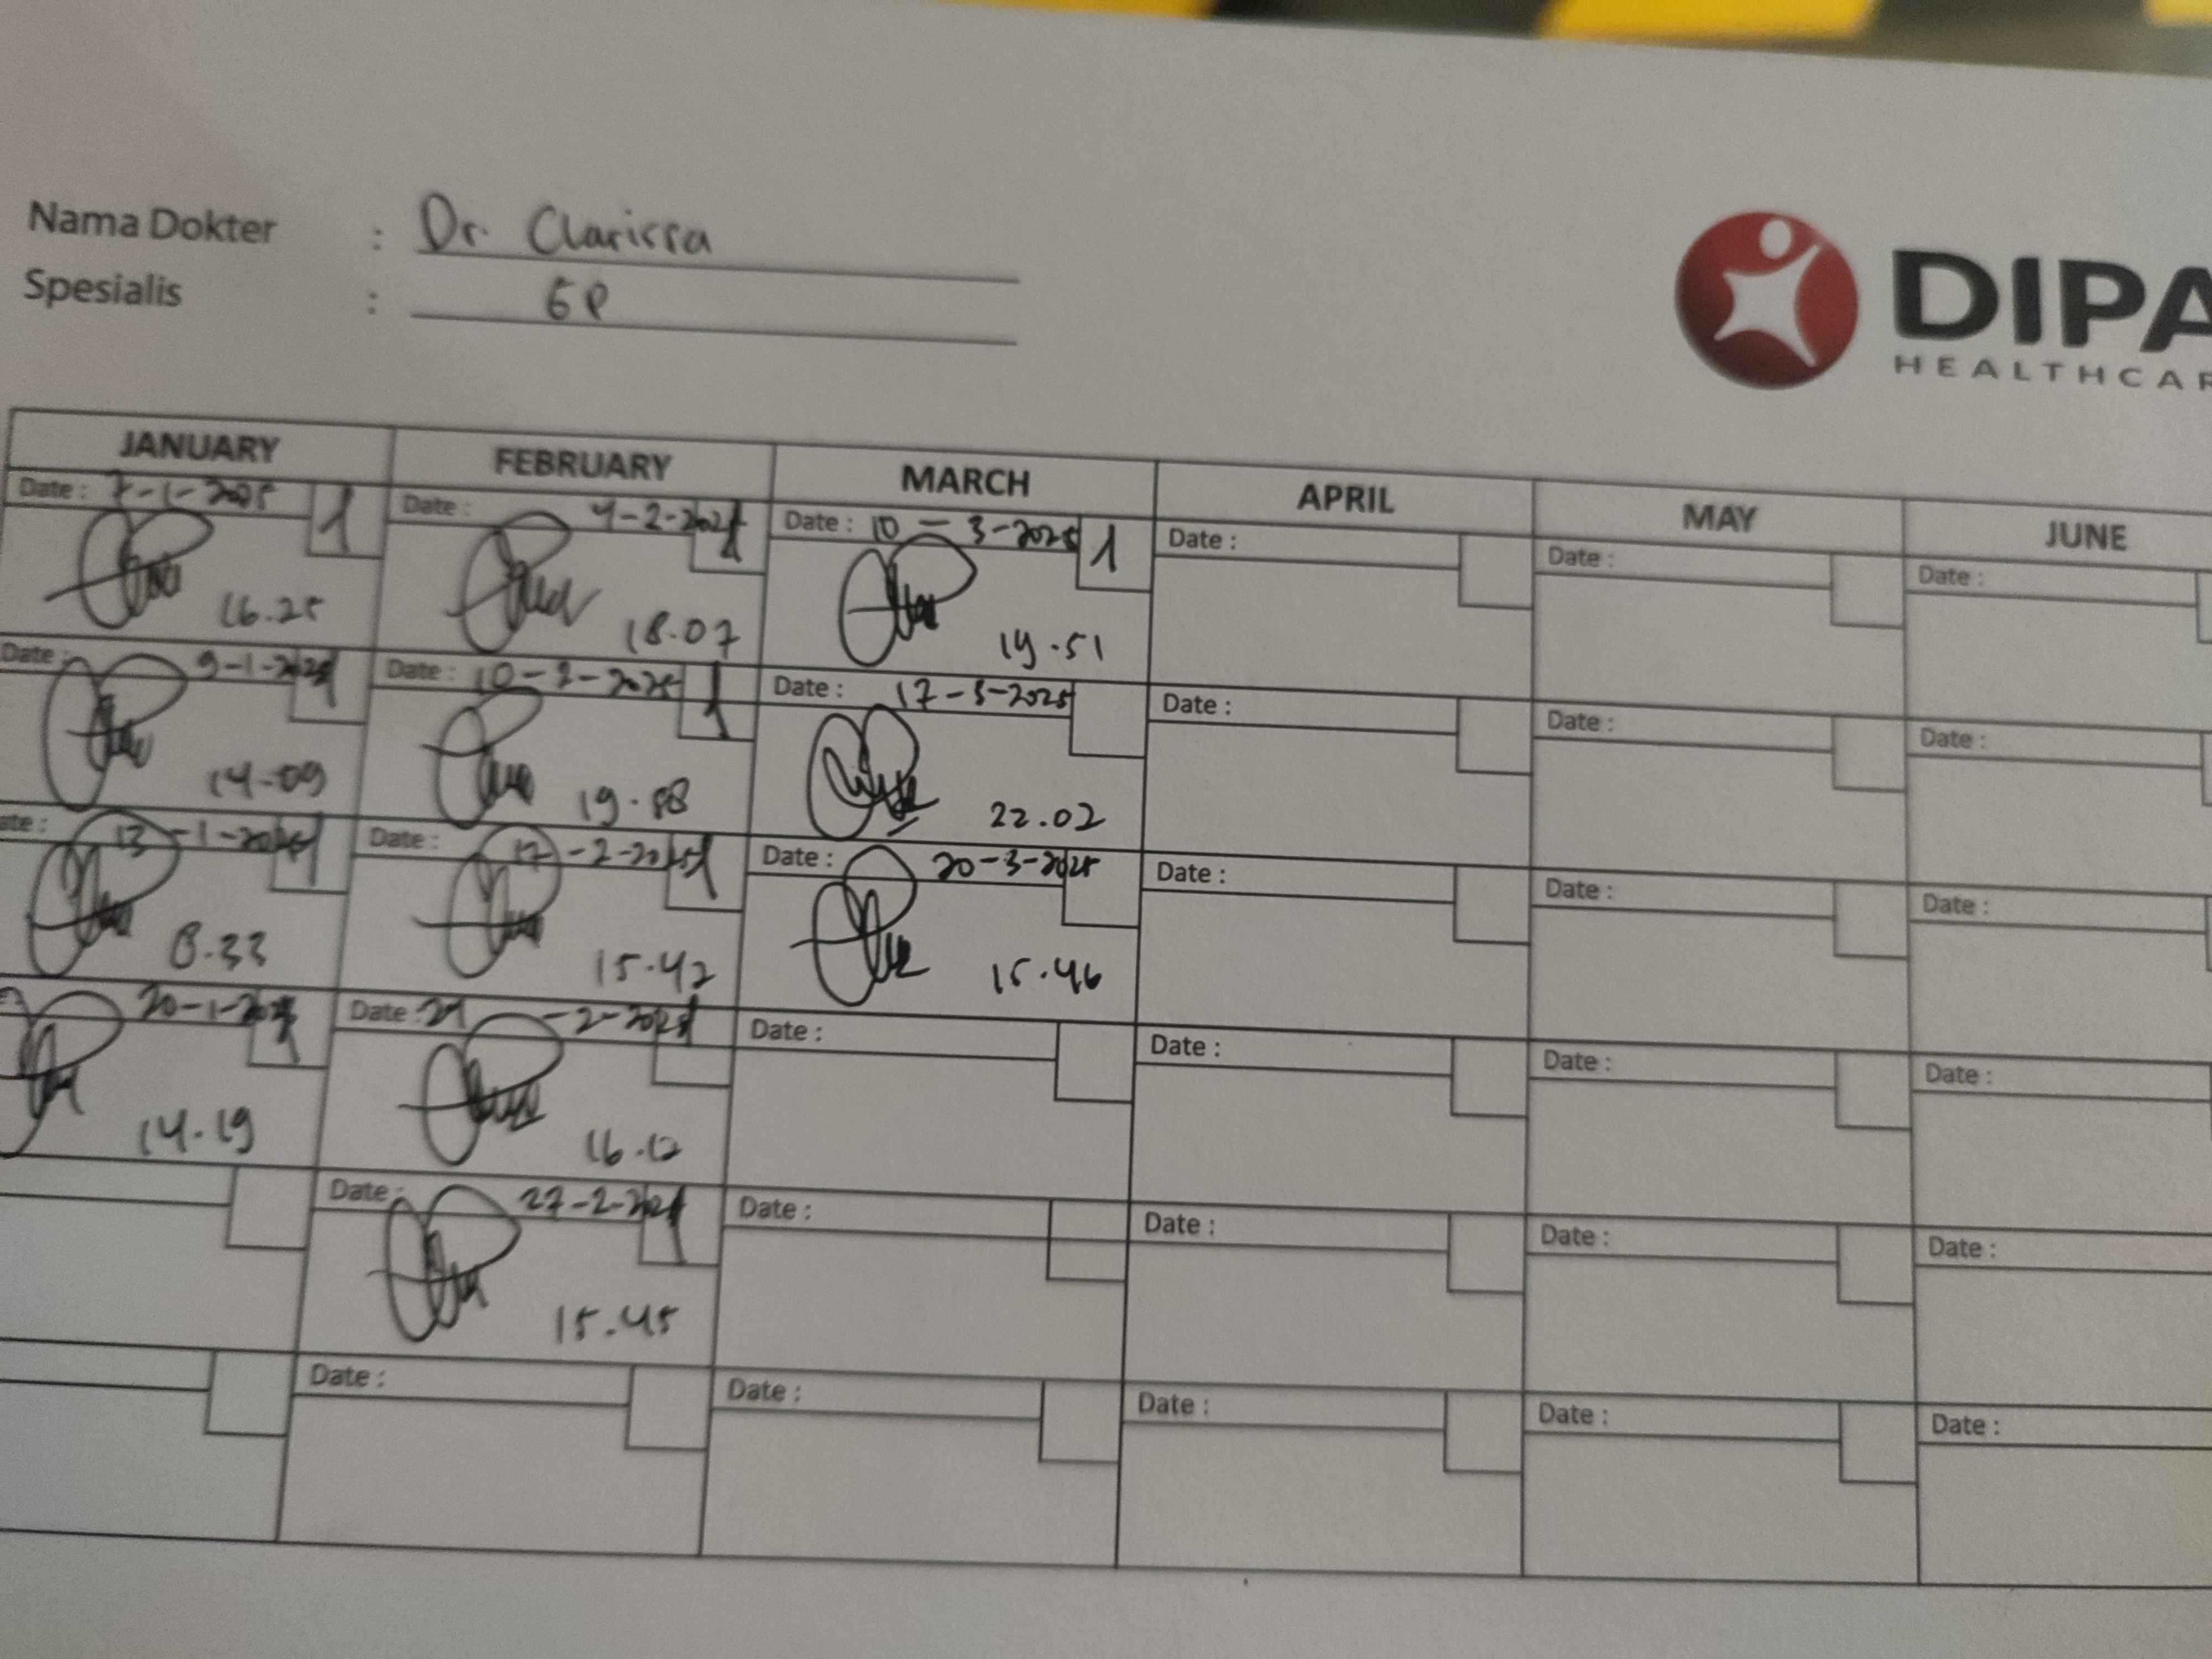 Nama Dokter : Dr. Clarissa
Spesialis : GP
DIPA
HEALTHCAR
JANUARY FEBRUARY MARCH APRIL MAY JUNE
Date : 7-1-2025 1 Date : 4-2-2025 1 Date : 10-3-2025 1 Date : Date : Date :
16.25 18.07 19.51
Date : 9-1-2025 1 Date : 10-2-2025 1 Date : 17-3-2025 Date : Date : Date :
14.09 22.02
ate : 13-1-2025 1 Date : 17-2-2025 1 Date : 20-3-2025 Date : Date : Date :
8.33 15.42 15.46
20-1-2025 1 Date : -2-2025 Date : Date : Date : Date :
14.19 16.12
Date : 27-2-2025 1 Date : Date : Date : Date :
15.45
Date : Date : Date : Date : Date :